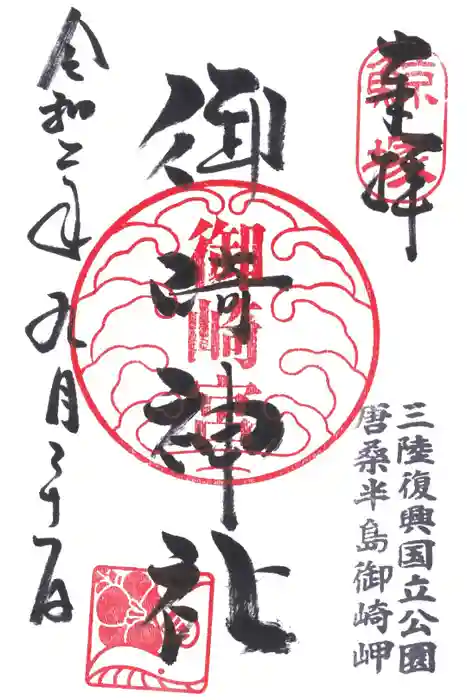 奉拝
鯨塚
三陸復興国立公園
唐桑半島御崎岬
御崎神社
御崎宮
令和二年九月十日